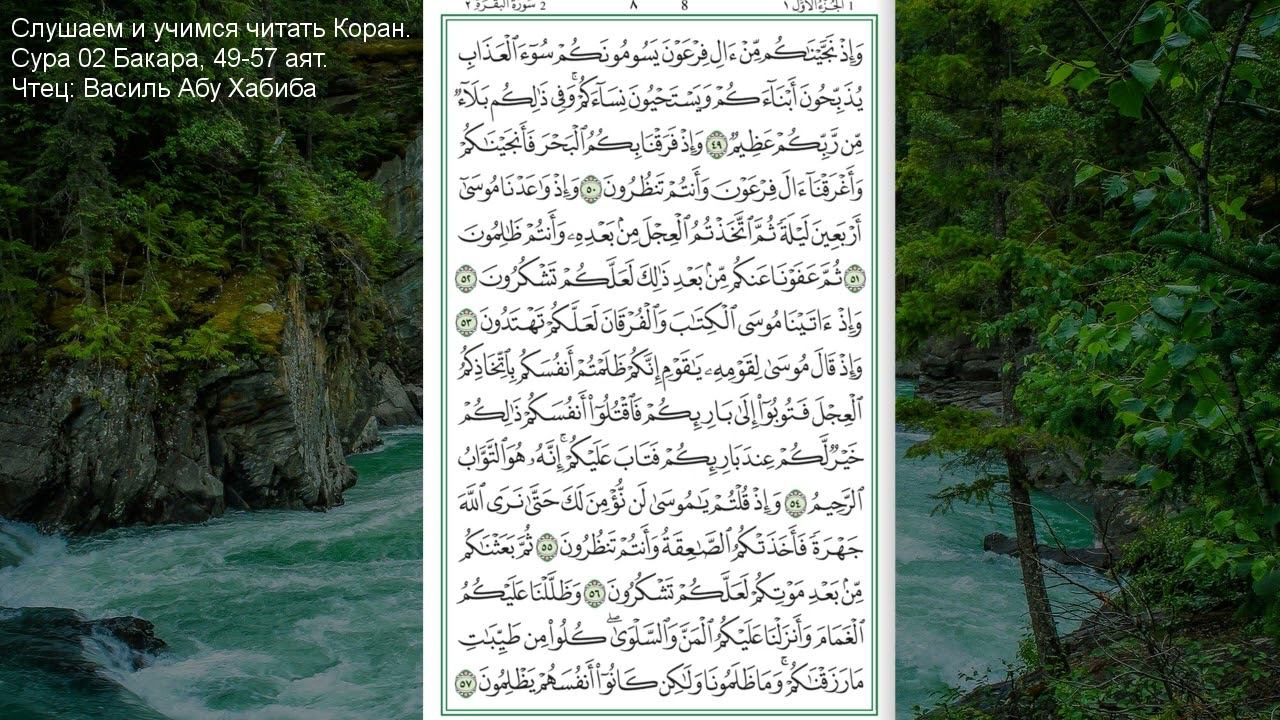 Слушаем и учимся читать Коран.
Сура 02 Бакара, 49-57 аят.
Чтец: Василь Абу Хабиба
1 الجُزْءُ الأوّل ١ 8 ٨ 2 سُورَةُ البَقَرَة ٢
وَإِذْ نَجَّيْنَٰكُم مِّنْ ءَالِ فِرْعَوْنَ يَسُومُونَكُمْ سُوٓءَ ٱلْعَذَابِ
يُذَبِّحُونَ أَبْنَآءَكُمْ وَيَسْتَحْيُونَ نِسَآءَكُمْ ۚ وَفِى ذَٰلِكُم بَلَآءٌ
مِّن رَّبِّكُمْ عَظِيمٌ ٤٩ وَإِذْ فَرَقْنَا بِكُمُ ٱلْبَحْرَ فَأَنجَيْنَٰكُمْ
وَأَغْرَقْنَآ ءَالَ فِرْعَوْنَ وَأَنتُمْ تَنظُرُونَ ٥٠ وَإِذْ وَٰعَدْنَا مُوسَىٰٓ
أَرْبَعِينَ لَيْلَةً ثُمَّ ٱتَّخَذْتُمُ ٱلْعِجْلَ مِنۢ بَعْدِهِۦ وَأَنتُمْ ظَٰلِمُونَ
٥١ ثُمَّ عَفَوْنَا عَنكُم مِّنۢ بَعْدِ ذَٰلِكَ لَعَلَّكُمْ تَشْكُرُونَ ٥٢
وَإِذْ ءَاتَيْنَا مُوسَى ٱلْكِتَٰبَ وَٱلْفُرْقَانَ لَعَلَّكُمْ تَهْتَدُونَ ٥٣
وَإِذْ قَالَ مُوسَىٰ لِقَوْمِهِۦ يَٰقَوْمِ إِنَّكُمْ ظَلَمْتُمْ أَنفُسَكُم بِٱتِّخَاذِكُمُ
ٱلْعِجْلَ فَتُوبُوٓا۟ إِلَىٰ بَارِئِكُمْ فَٱقْتُلُوٓا۟ أَنفُسَكُمْ ذَٰلِكُمْ
خَيْرٌ لَّكُمْ عِندَ بَارِئِكُمْ فَتَابَ عَلَيْكُمْ ۚ إِنَّهُۥ هُوَ ٱلتَّوَّابُ
ٱلرَّحِيمُ ٥٤ وَإِذْ قُلْتُمْ يَٰمُوسَىٰ لَن نُّؤْمِنَ لَكَ حَتَّىٰ نَرَى ٱللَّهَ
جَهْرَةً فَأَخَذَتْكُمُ ٱلصَّٰعِقَةُ وَأَنتُمْ تَنظُرُونَ ٥٥ ثُمَّ بَعَثْنَٰكُم
مِّنۢ بَعْدِ مَوْتِكُمْ لَعَلَّكُمْ تَشْكُرُونَ ٥٦ وَظَلَّلْنَا عَلَيْكُمُ
ٱلْغَمَامَ وَأَنزَلْنَا عَلَيْكُمُ ٱلْمَنَّ وَٱلسَّلْوَىٰ ۖ كُلُوا۟ مِن طَيِّبَٰتِ
مَا رَزَقْنَٰكُمْ ۚ وَمَا ظَلَمُونَا وَلَٰكِن كَانُوٓا۟ أَنفُسَهُمْ يَظْلِمُونَ ٥٧